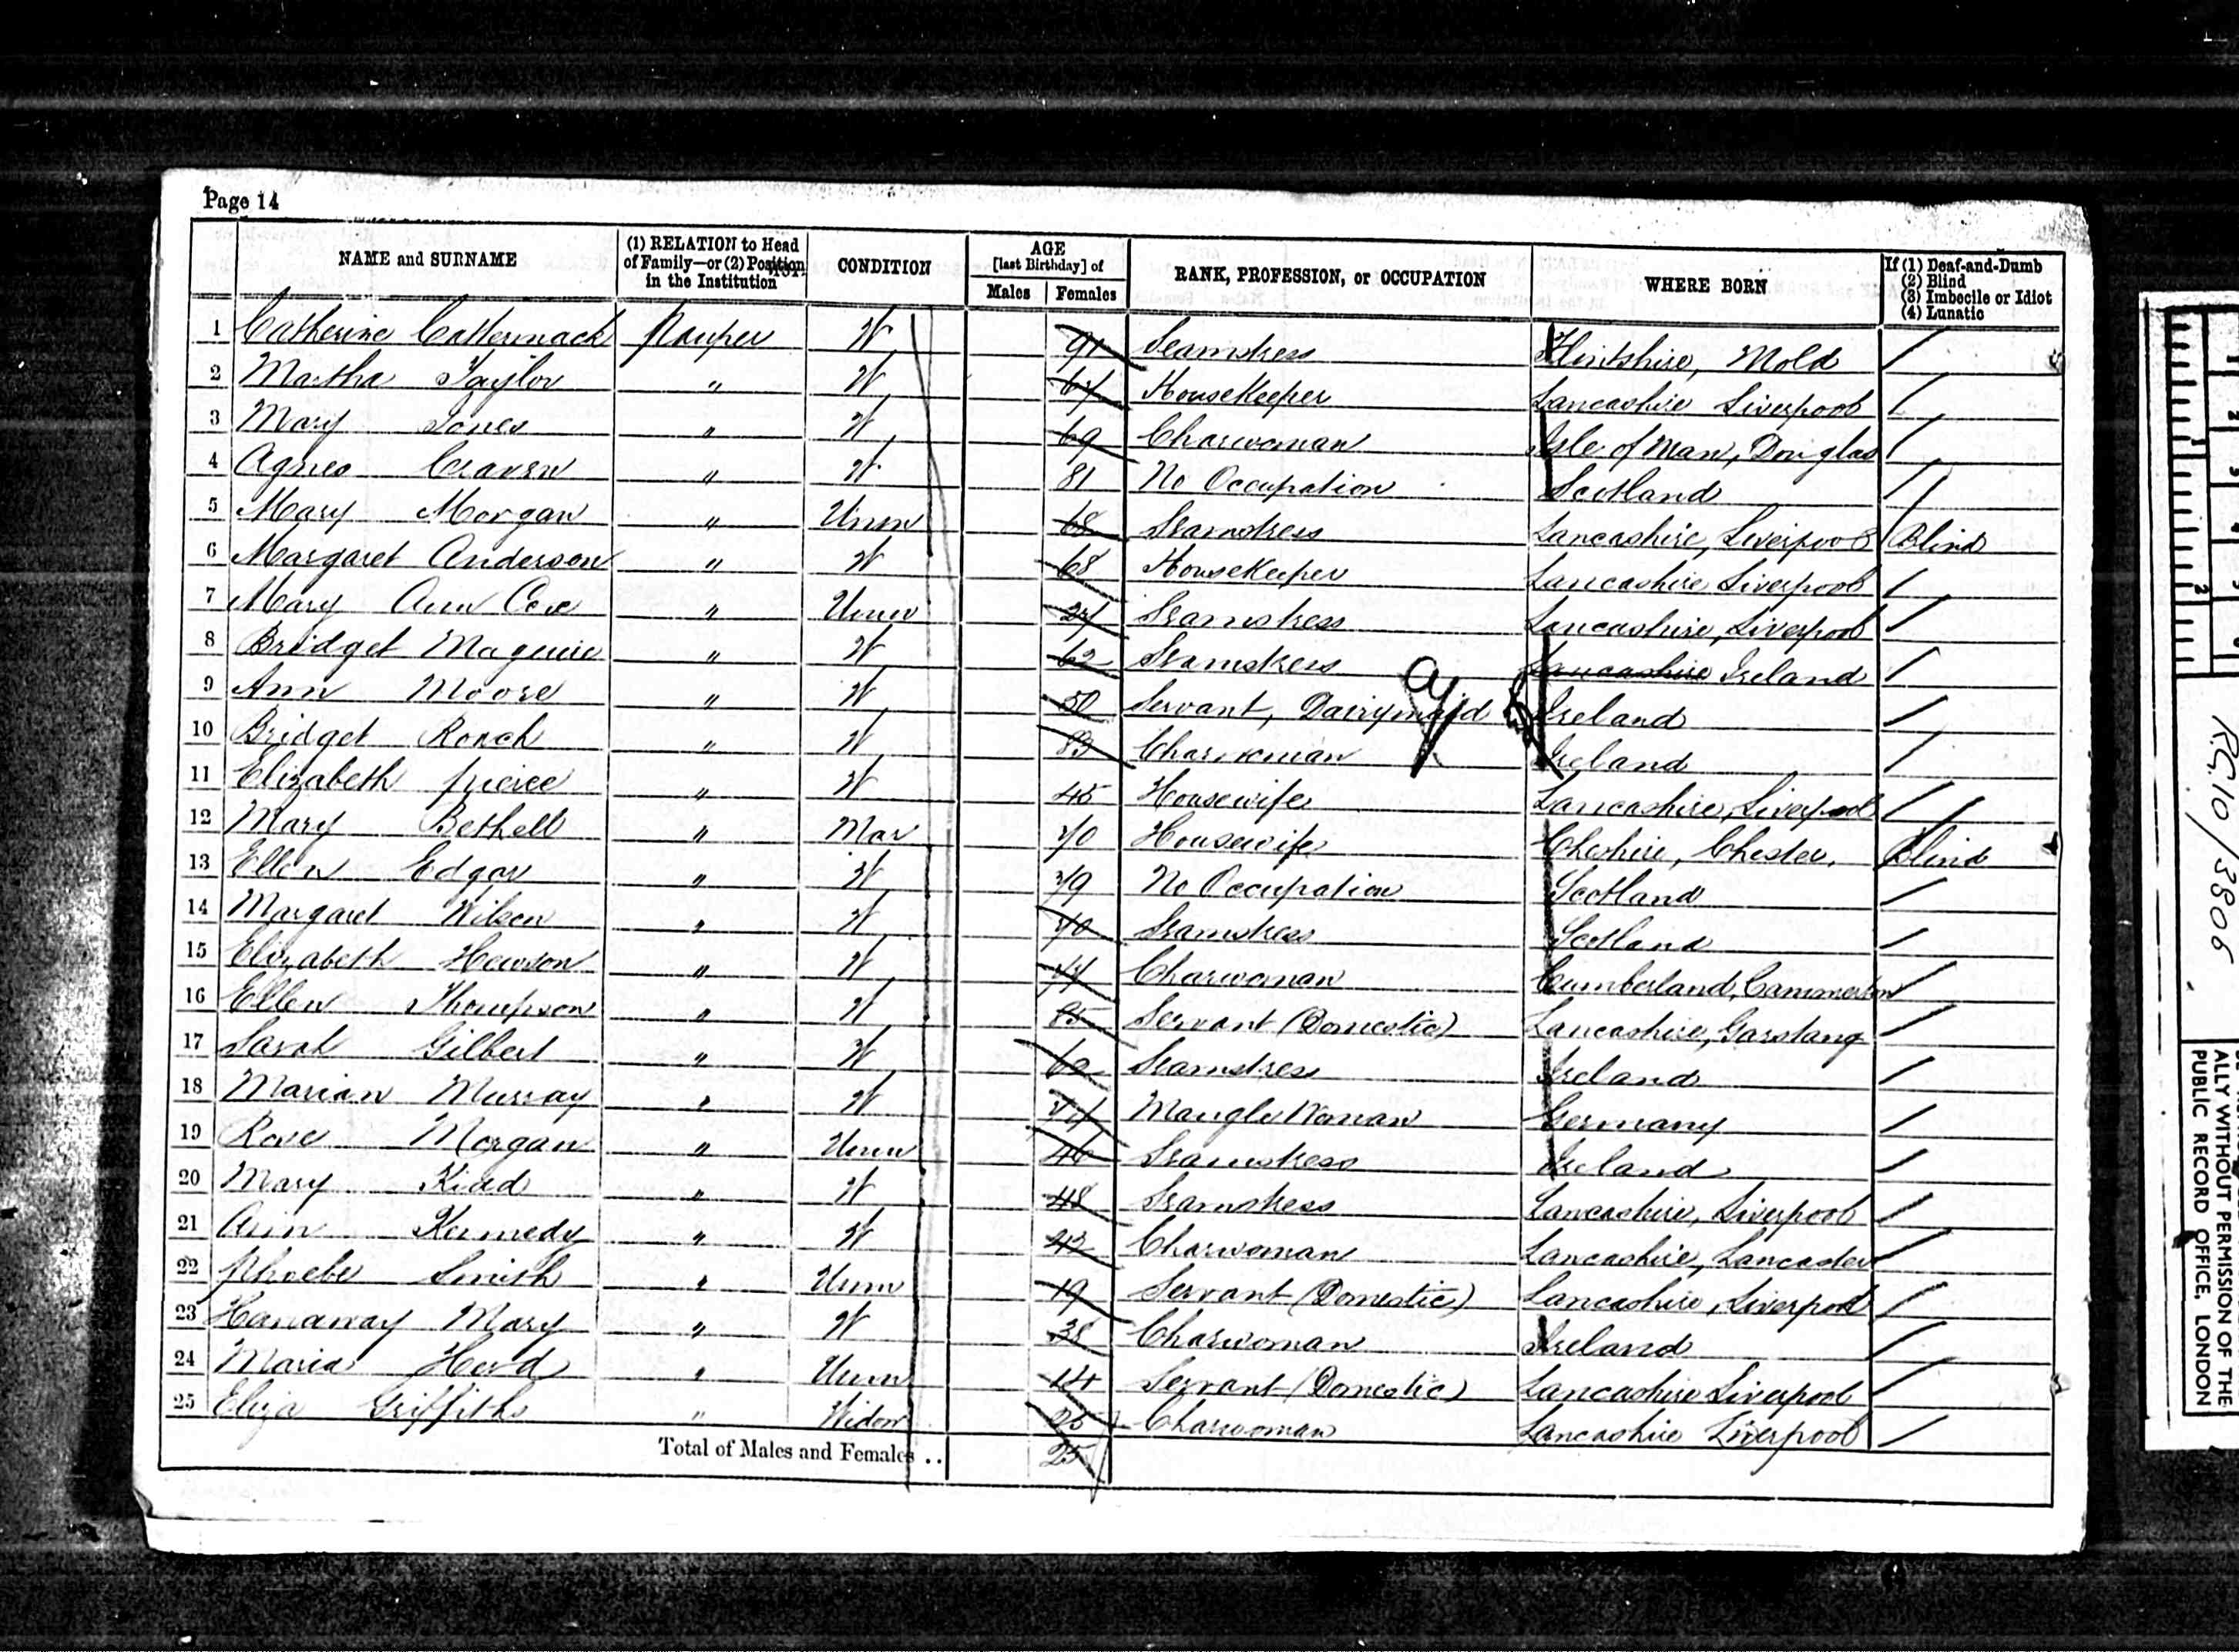 Page 14
NAME and SURNAME
(1) RELATION to Head of Family—or (2) Position in the Institution
CONDITION
AGE [last Birthday] of
Males Females
RANK, PROFESSION, or OCCUPATION
WHERE BORN
If (1) Deaf-and-Dumb
(2) Blind
(3) Imbecile or Idiot
(4) Lunatic
1 Catherine Pauper W 91 Seamstress Flintshire, Mold
2 Martha Taylor " W Housekeeper Lancashire Liverpool
3 Mary Jones " W 69 Charwoman Isle of Man, Douglas
4 Agnes Craven " W 81 No Occupation Scotland
5 Mary Morgan " Unm 68 Seamstress Lancashire, Liverpool Blind
6 Margaret Anderson " W 68 Housekeeper Lancashire Liverpool
7 Mary Ann " Unm Seamstress Lancashire, Liverpool
8 Bridget Maguire " W 62 Seamstress Lancashire Ireland
9 Ann Moore " W 50 Servant, Dairymaid Ireland
10 Bridget Roach " W 83 Charwoman Ireland
11 Elizabeth Pierce " W 45 Housewife Lancashire, Liverpool
12 Mary Bethell " Mar 70 Housewife Cheshire, Chester, Blind
13 Ellen Edgar " W 79 No Occupation Scotland
14 Margaret Wilson " W 70 Seamstress Scotland
15 Elizabeth Hewson " W 77 Charwoman Cumberland, Cammerton
16 Ellen Thompson " W 85 Servant (Domestic) Lancashire, Garstang
17 Sarah Gilbert " W 60 Seamstress Ireland
18 Marian Murray " W Mangle Woman Germany
19 Rose Morgan " Unm 46 Seamstress Ireland
20 Mary Kidd " W 48 Seamstress Lancashire, Liverpool
21 Ann Kennedy " W 42 Charwoman Lancashire, Lancaster
22 Phoebe Smith " Unm 19 Servant (Domestic) Lancashire, Liverpool
23 Hannaway Mary " W 38 Charwoman Ireland
24 Maria " Unm Servant (Domestic) Lancashire Liverpool
25 Eliza Griffiths " Widow 25 Charwoman Lancashire Liverpool
Total of Males and Females .. 25
RG.10/3806
ALLY WITHOUT PERMISSION OF THE
PUBLIC RECORD OFFICE, LONDON